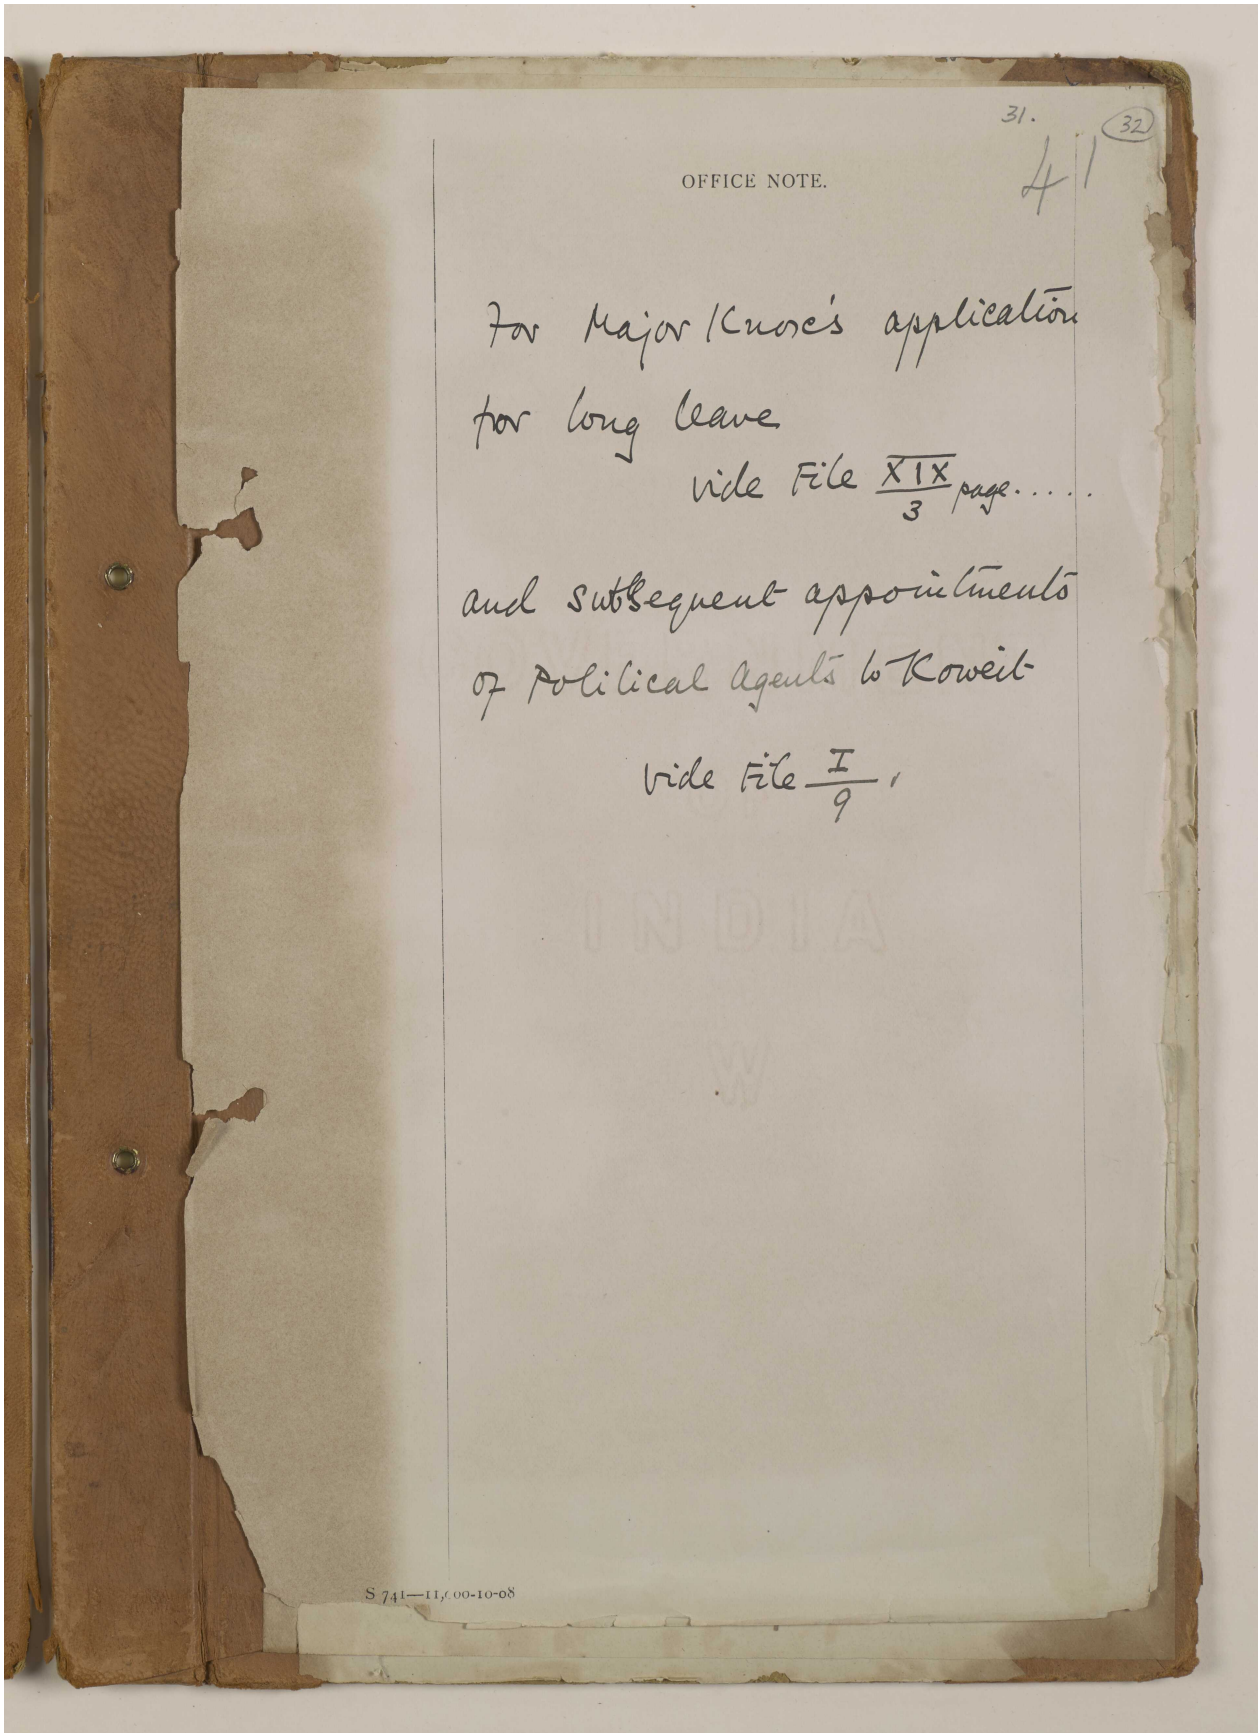 31.
32
41
OFFICE NOTE.
For Major Knox's application
for long leave
vide File XIX/3 page.....
and subsequent appointments
of Political Agents to Koweit
vide File I/9.
INDIA
W
S 741—11,000-10-08